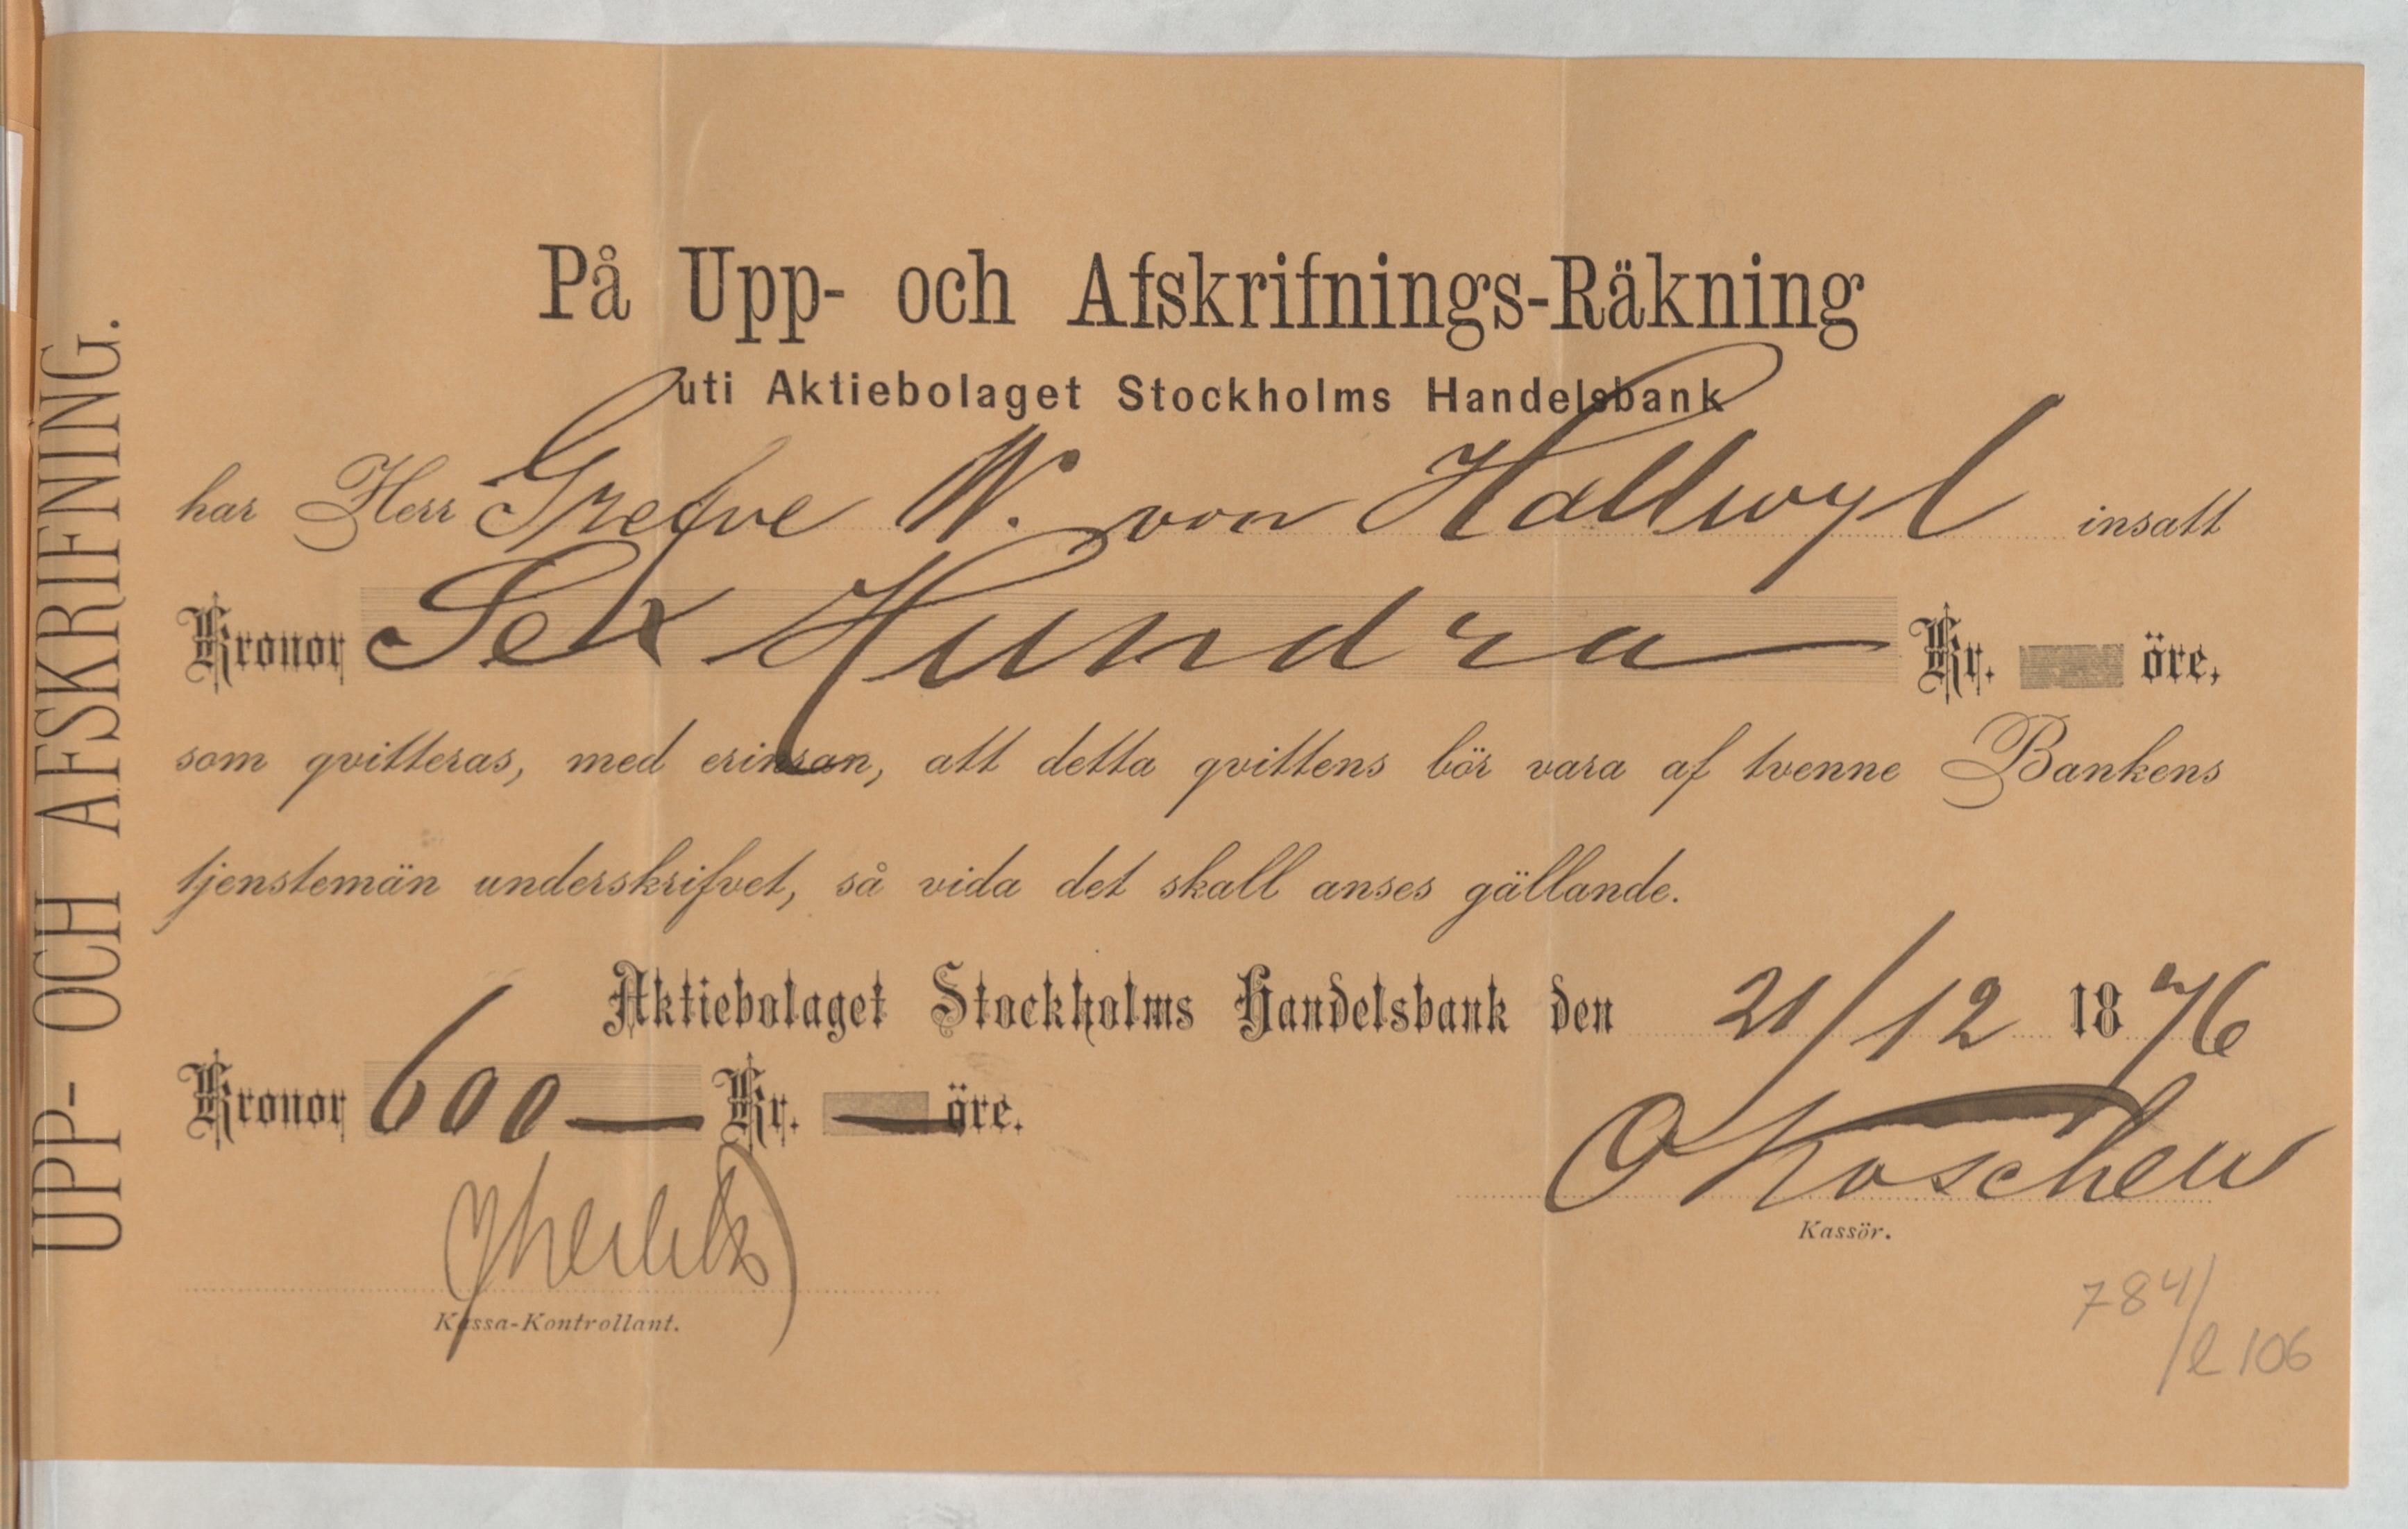 UPP- OCH AFSKRIFNING.
På Upp- och Afskrifnings-Räkning
uti Aktiebolaget Stockholms Handelsbank
har Herr Grefve W. von Hallwyl insatt
Kronor Sex Hundra — Kr. öre,
som qvitteras, med erinran, att detta qvittens bör vara af tvenne Bankens
tjenstemän underskrifvet, så vida det skall anses gällande.
Aktiebolaget Stockholms Handelsbank den 21/12 1876
Kronor 600 — Kr. — öre.
Kassör.
Kassa-Kontrollant.
784/
/l 106